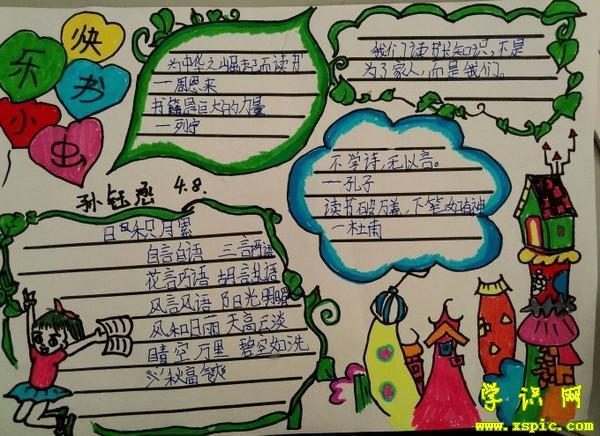 快
乐 书
小 虫
为中华之崛起而读书
—周恩来
书籍是巨大的力量
—列宁
我们读书求知识,不是
为了家人,而是我们。
不学诗,无以言。
—孔子
读书破万卷,下笔如有神
—杜甫
孙钰涵 4.8.
日积月累
自言自语 三言两语
花言巧语 胡言乱语
风言风语 阳光明媚
风和日丽 天高云淡
晴空万里 碧空如洗
秋高气
学识网
www.xspic.com